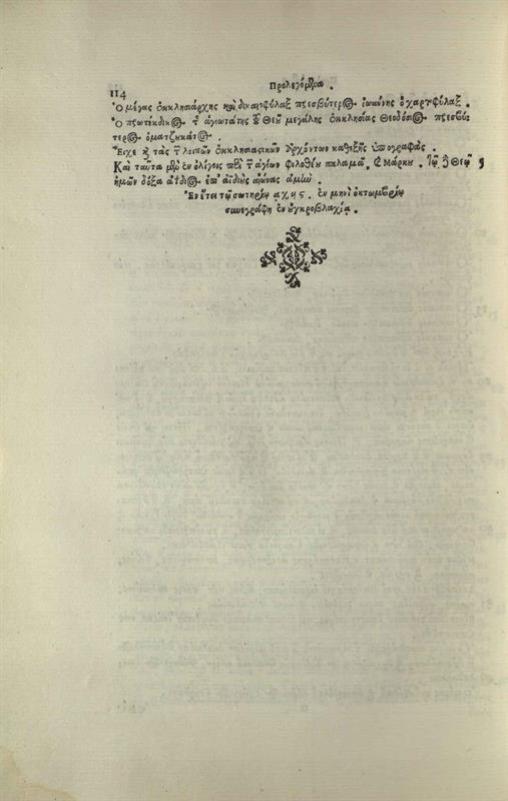 Προλεγόμενα .
114
Ὁ μέγας ἐκκλησιάρχης καὶ δικαιοφύλαξ πρεσβύτερος ἰωάννης ὁ χαρτοφύλαξ .
Ὁ πρωτέκδικος τ ἁγιωτάτης τοῦ Θεοῦ μεγάλης ἐκκλησίας Θεοδόσιος πρεσβύ:
τερος ὁματζουκάτος .
Εἶχε καὶ τὰς τ λειπῶν ἐκκλησιαστικῶν ἀρχόντων καθεξῆς ὑπογραφάς .
Καὶ ταῦτα μὲν ἐν ὀλίγοις περὶ τ ἁγίων φιλοθέου παλαμᾶ, καὶ Μάρκου . Τῷ δὲ Θεῷ
ἡμῶν δόξα ἀΐδιος ἐπ' ἀϊδίους αἰῶνας ἀμήν .
Ἐν ἔτει τῷ σωτηρίῳ
ἐν μηνὶ ὀκτωμβρίῳ
συνεγράφη ἐν οὐγκροβλαχίᾳ .